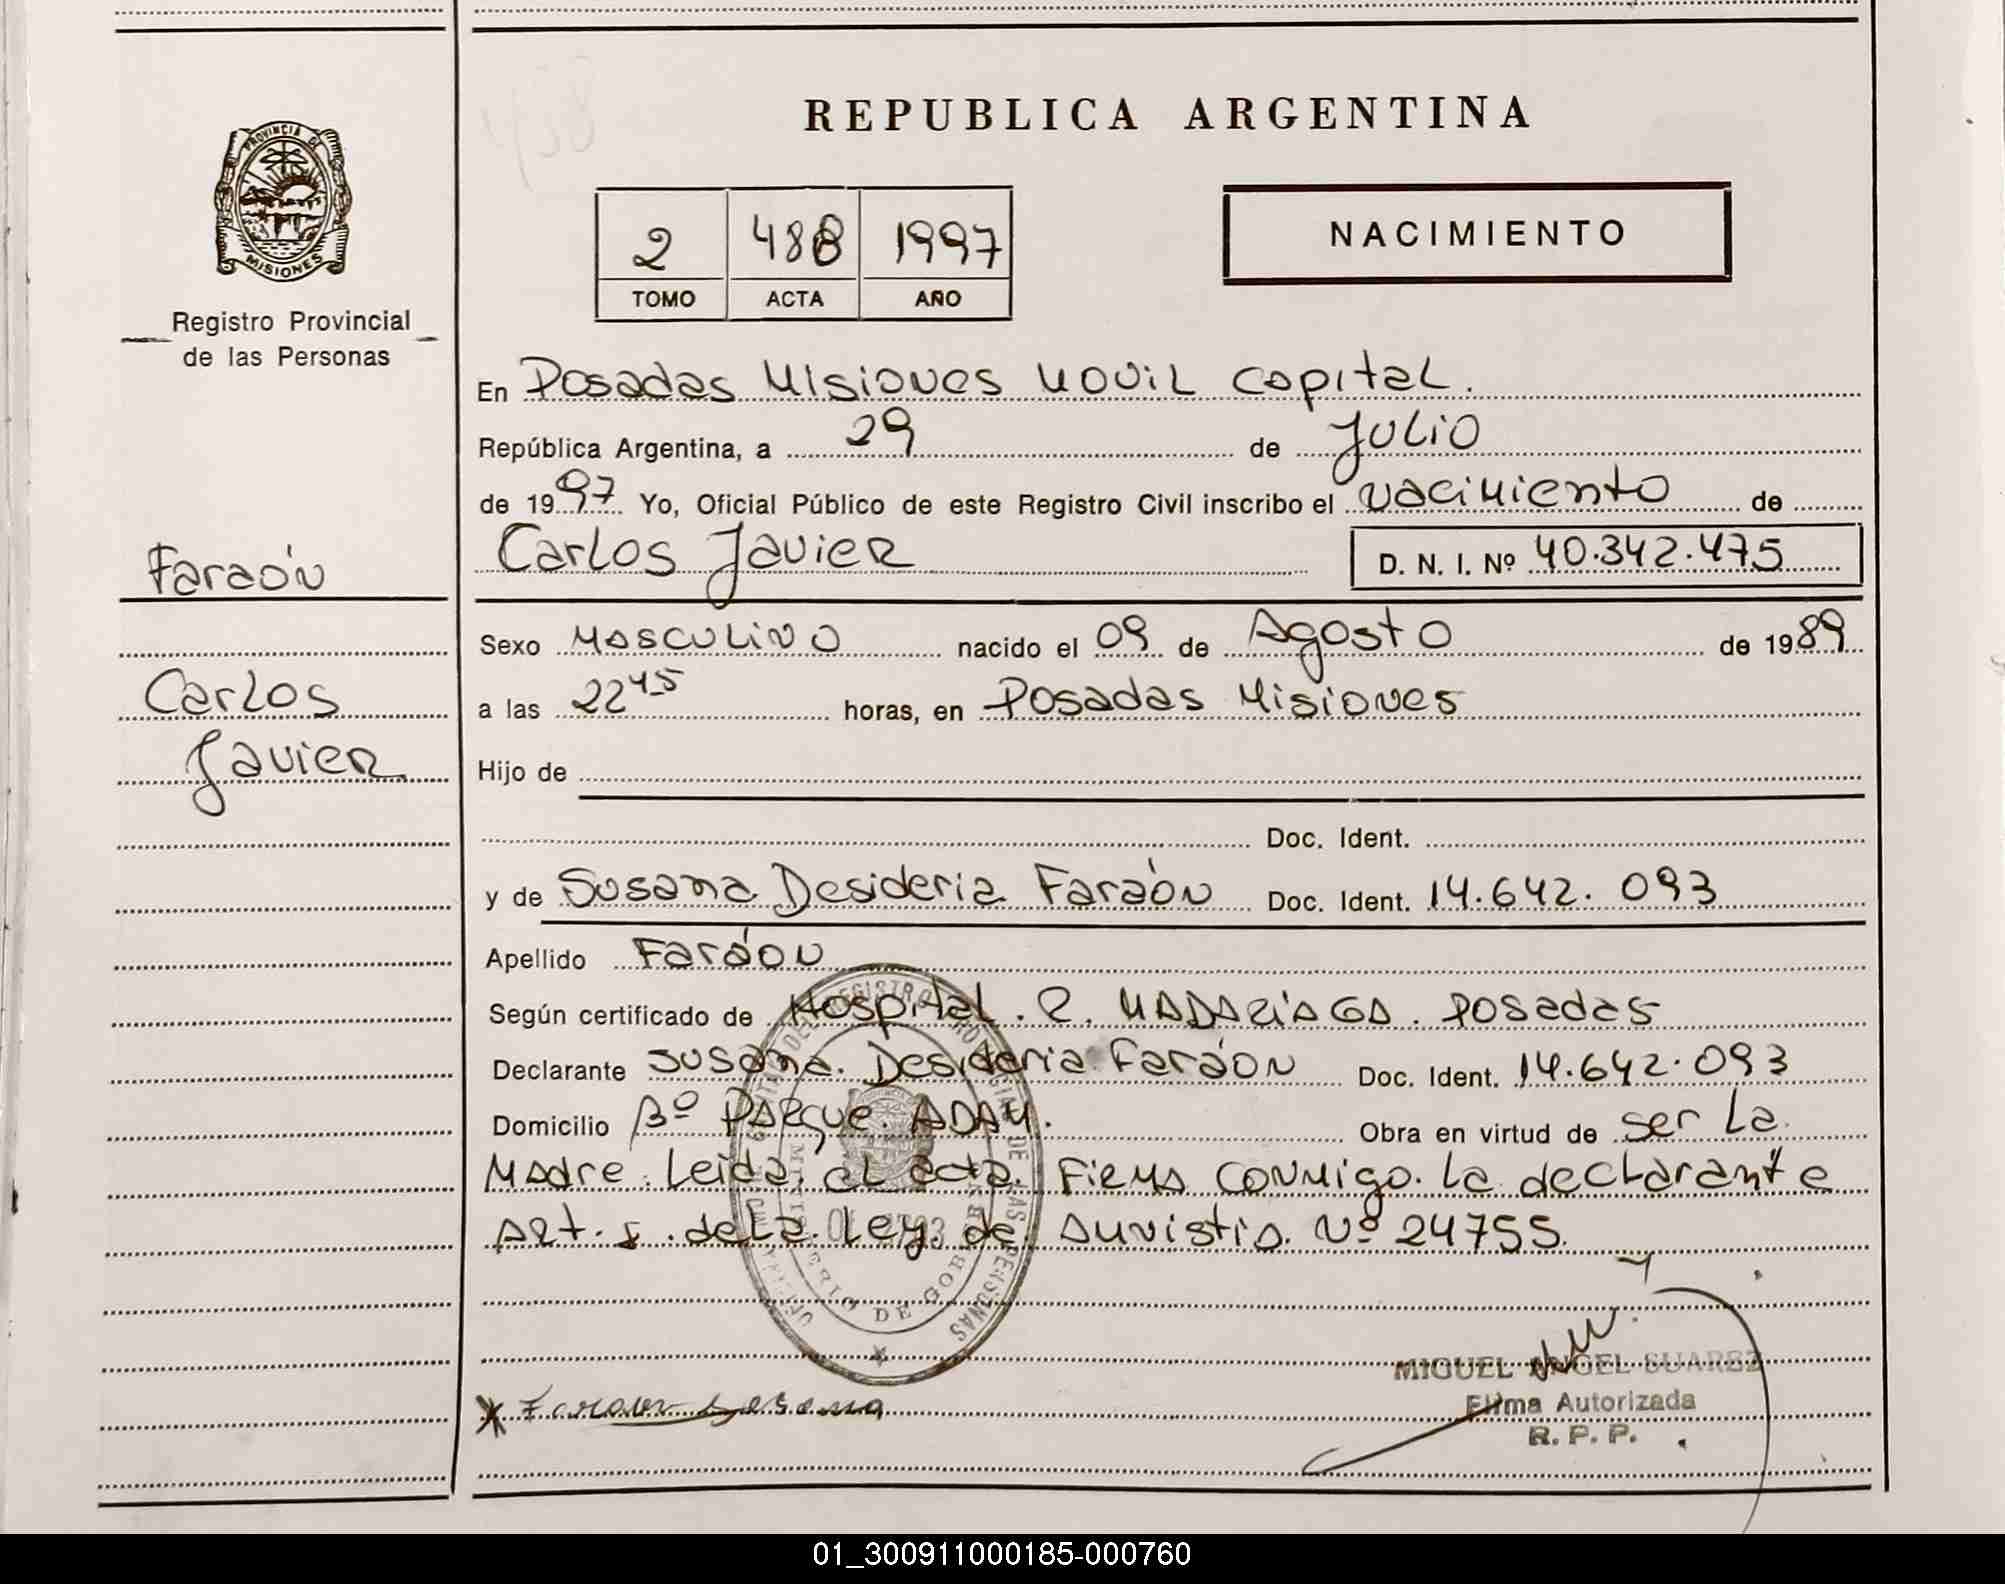 REPUBLICA ARGENTINA
PROVINCIA DE MISIONES
Registro Provincial
de las Personas
2 488 1997
TOMO ACTA AÑO
NACIMIENTO
En Posadas Misiones Movil Capital.
República Argentina, a 29 de Julio
de 1997 Yo, Oficial Público de este Registro Civil inscribo el Nacimiento de
Carlos Javier D. N. I. Nº 40.342.475
Faraón
Carlos
Javier
Sexo Masculino nacido el 09 de Agosto de 1989
a las 22 45 horas, en Posadas Misiones
Hijo de
Doc. Ident.
y de Susana Desideria Faraón Doc. Ident. 14.642.093
Apellido Faráon
Según certificado de Hospital. R. MADARiAGA. Posadas
Declarante Susana. Desideria Faráon Doc. Ident. 14.642.093
Domicilio Bº PARque. ADAM. Obra en virtud de ser La
Madre. Leida. el acta. Firma conmigo. La declarante
Art. de la Ley. de Amnistia. Nº 24755.
REGISTRO PROVINCIAL DE LAS PERSONAS
MINISTERIO DE GOBIERNO
Faraon Susana
MIGUEL ANGEL SUAREZ
Firma Autorizada
R. P. P.
01_300911000185-000760